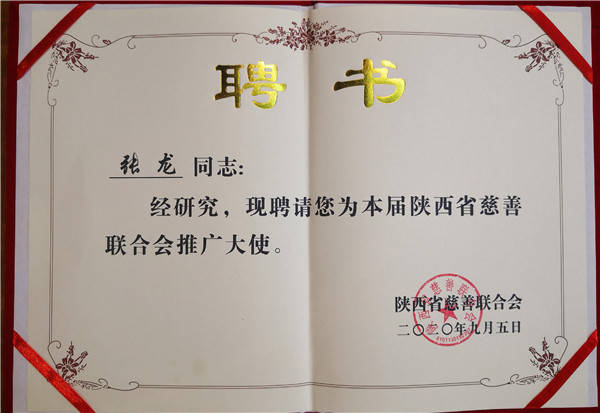 聘书
张龙 同志：
经研究，现聘请您为本届陕西省慈善
联合会推广大使。
陕西省慈善联合会
二〇二〇年九月五日